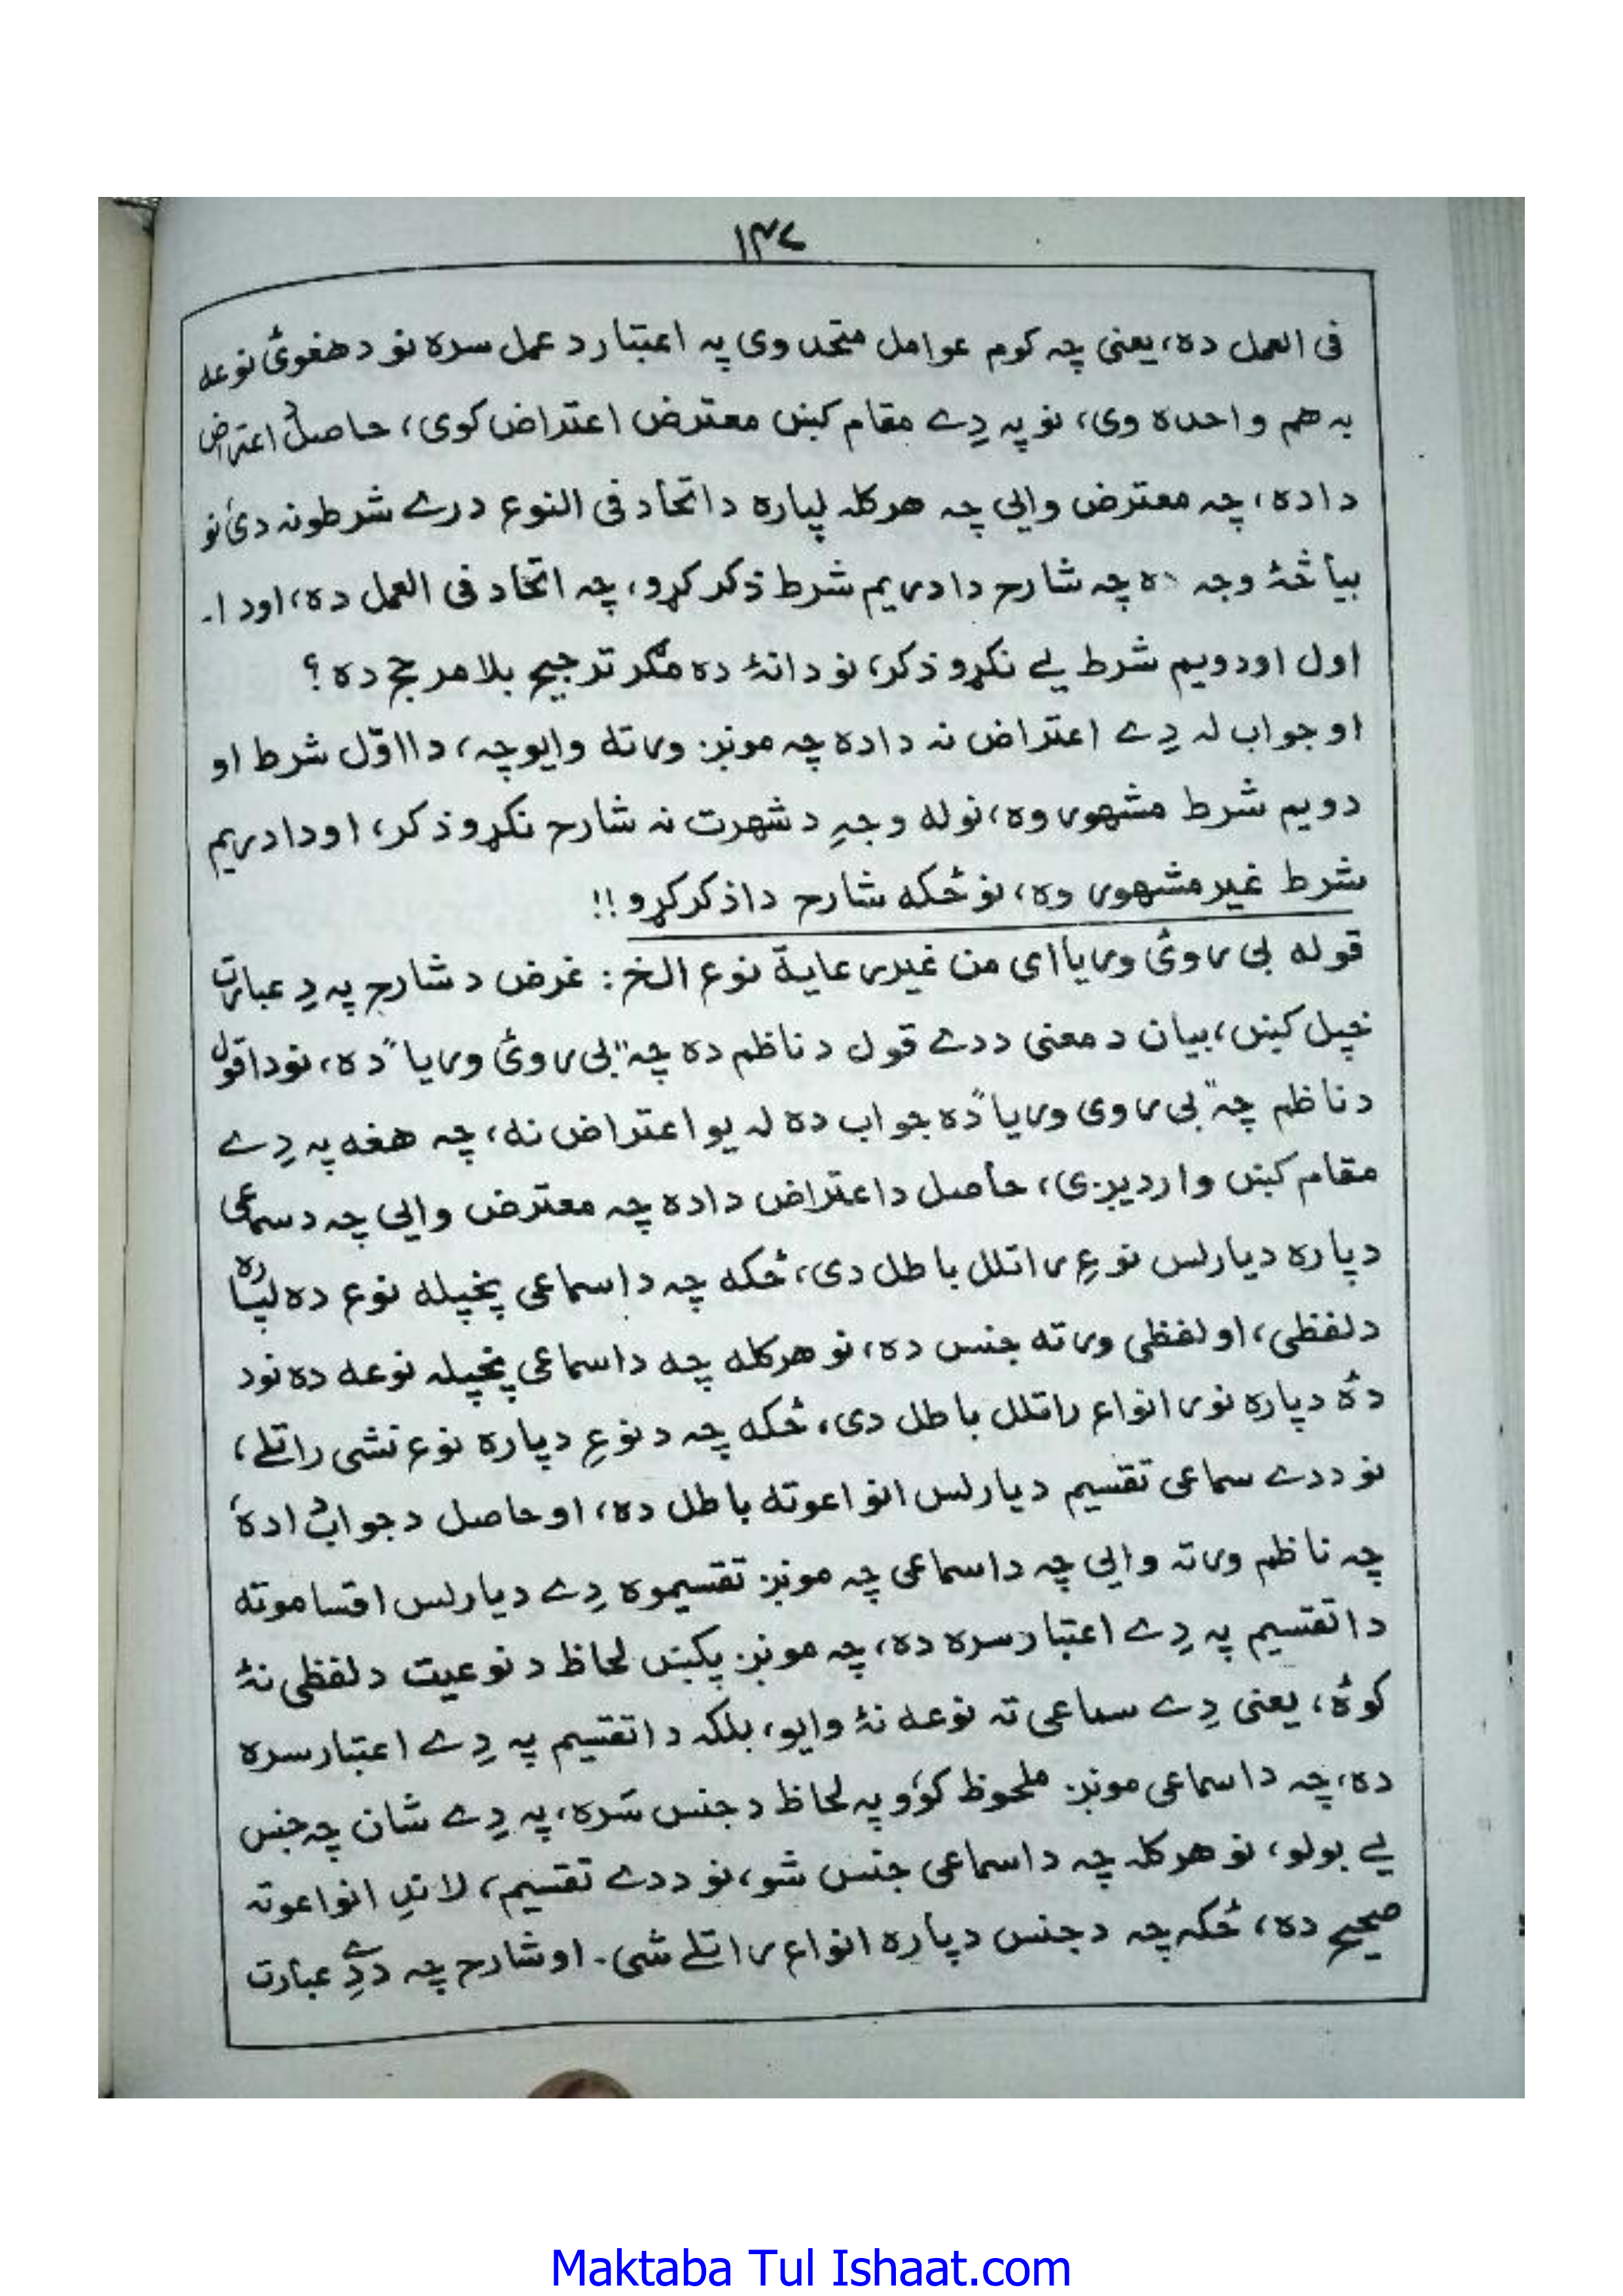 ۱۴۷
فی العمل ده، یعنی چہ کوم عوامل متحد وی پہ اعتبار د عمل سره نو د هغوئ نوعه
بہ هم واحده وی، نو پہ دِے مقام کښ معترض اعتراض کوی، حاصل د اعتراض
دا ده، چہ معترض وایی چہ هرکلہ لپاره د اتحاد فی النوع درے شرطونہ دی نو
بیا څۀ وجہ ده چہ شارح دا دریم شرط ذکر کړو، چہ اتحاد فی العمل ده، او دا۔
اول او دویم شرط یے نکړو ذکر، نو دا نۀ ده مگر ترجیح بلا مرجح ده ؟
او جواب لہ دِے اعتراض نہ دا ده چہ مونږ ورتہ وایو چہ، دا اوّل شرط او
دویم شرط مشهور وه، نو لہ وجہِ د شهرت نہ شارح نکړو ذکر، او دا دریم
شرط غیر مشهور وه، نو ځکه شارح دا ذکر کړو !!
قوله بی روئ وریا ای من غیر رعایة نوع الخ : غرض د شارح پہ دِ عبارت
خپل کښ، بیان د معنی ددے قول د ناظم ده چہ "بی روئ وریا" ده، نو دا قول
د ناظم چہ "بی روی وریا" ده جواب ده لہ یو اعتراض نہ، چہ هغه پہ دِے
مقام کښ واردیږی، حاصل د اعتراض دا ده چہ معترض وایی چہ د سماعی
دپاره دیارلس نوعِ راتلل باطل دی، ځکه چہ دا سماعی پخپله نوع ده لپاره
د لفظی، او لفظی ورتہ جنس ده، نو هرکله چہ دا سماعی پخپلہ نوعه ده نو د
دۀ دپاره نور انواع راتلل باطل دی، ځکه چہ د نوعِ دپاره نوع نشی راتلے،
نو ددے سماعی تقسیم دیارلس انواعو تہ باطل ده، او حاصل د جواب دا ده
چہ ناظم ورتہ وایی چہ دا سماعی چہ مونږ تقسیموه دِے دیارلس اقسامو تہ
دا تقسیم پہ دِے اعتبار سره ده، چہ مونږ پکښ لحاظ د نوعیت د لفظی نۀ
کوۀ، یعنی دِے سماعی تہ نوعه نۀ وایو، بلکہ دا تقسیم پہ دِے اعتبار سره
ده، چہ دا سماعی مونږ ملحوظ کوؤ پہ لحاظ د جنس سَره، پہ دِے شان چہ جنس
یے بولو، نو هرکلہ چہ دا سماعی جنس شو، نو ددے تقسیم، لاندِ انواعو تہ
صحیح ده، ځکہ چہ د جنس دپاره انواع راتلے شی۔ او شارح چہ ددِے عبارت
Maktaba Tul Ishaat.com